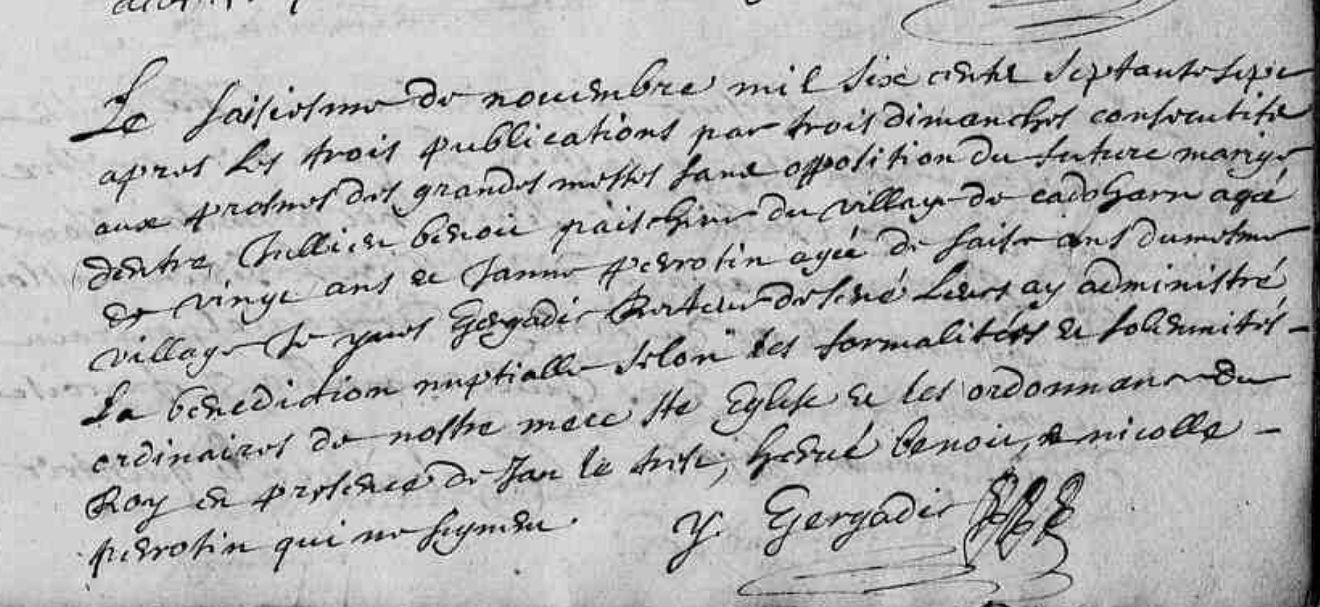 Le saisiesme de nouembre mil six cents septante sept
apres les trois publications par trois dimanches consecutifs
aux prosnes des grandes messes sans opposition du future mariage
dentre Jullien benoit du village de cadoharn agé
de vingt ans et Janne perrotin agée de saise ans du mesme
village Je yues Gergadic Recteur Leurs ay administré
La benediction nuptialle selon les formalités et solemnités
ordinaires de nostre mere Ste Eglise et les ordonnance du
Roy en presence de Jan le herué benoit, et nicolle
perrotin qui ne signent
y. Gergadic